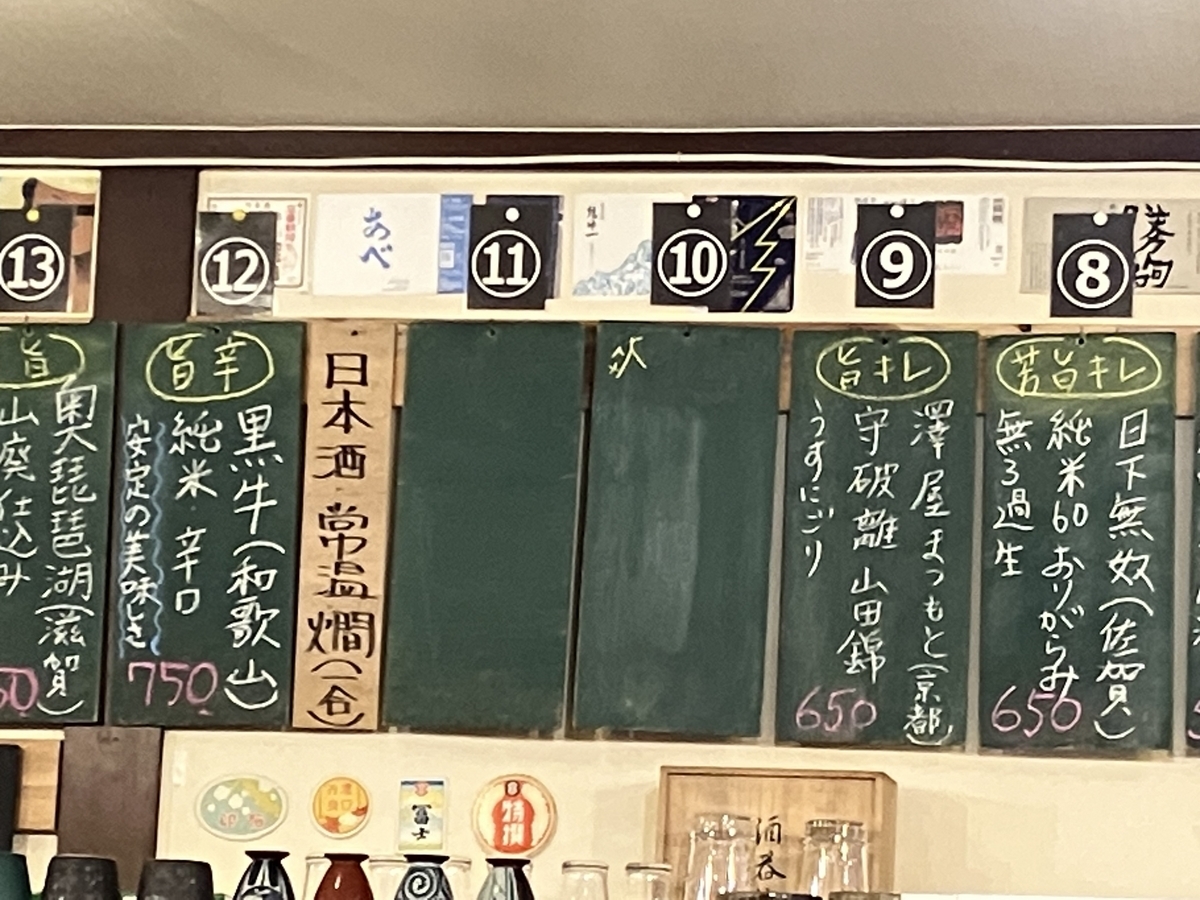 ⑧
⑨
⑩
⑪
⑫
⑬
勝駒
あべ
芳旨キレ
日下無双(佐賀)
純米60おりがらみ
無ろ過生
650
旨キレ
澤屋まつもと(京都)
守破離 山田錦
うすにごり
650
秋
日本酒・常温・燗(一合)
旨辛
黒牛(和歌山)
純米・辛口
安定の美味しさ
750
旨
奥琵琶湖(滋賀)
山廃仕込み
50
特撰
冨士